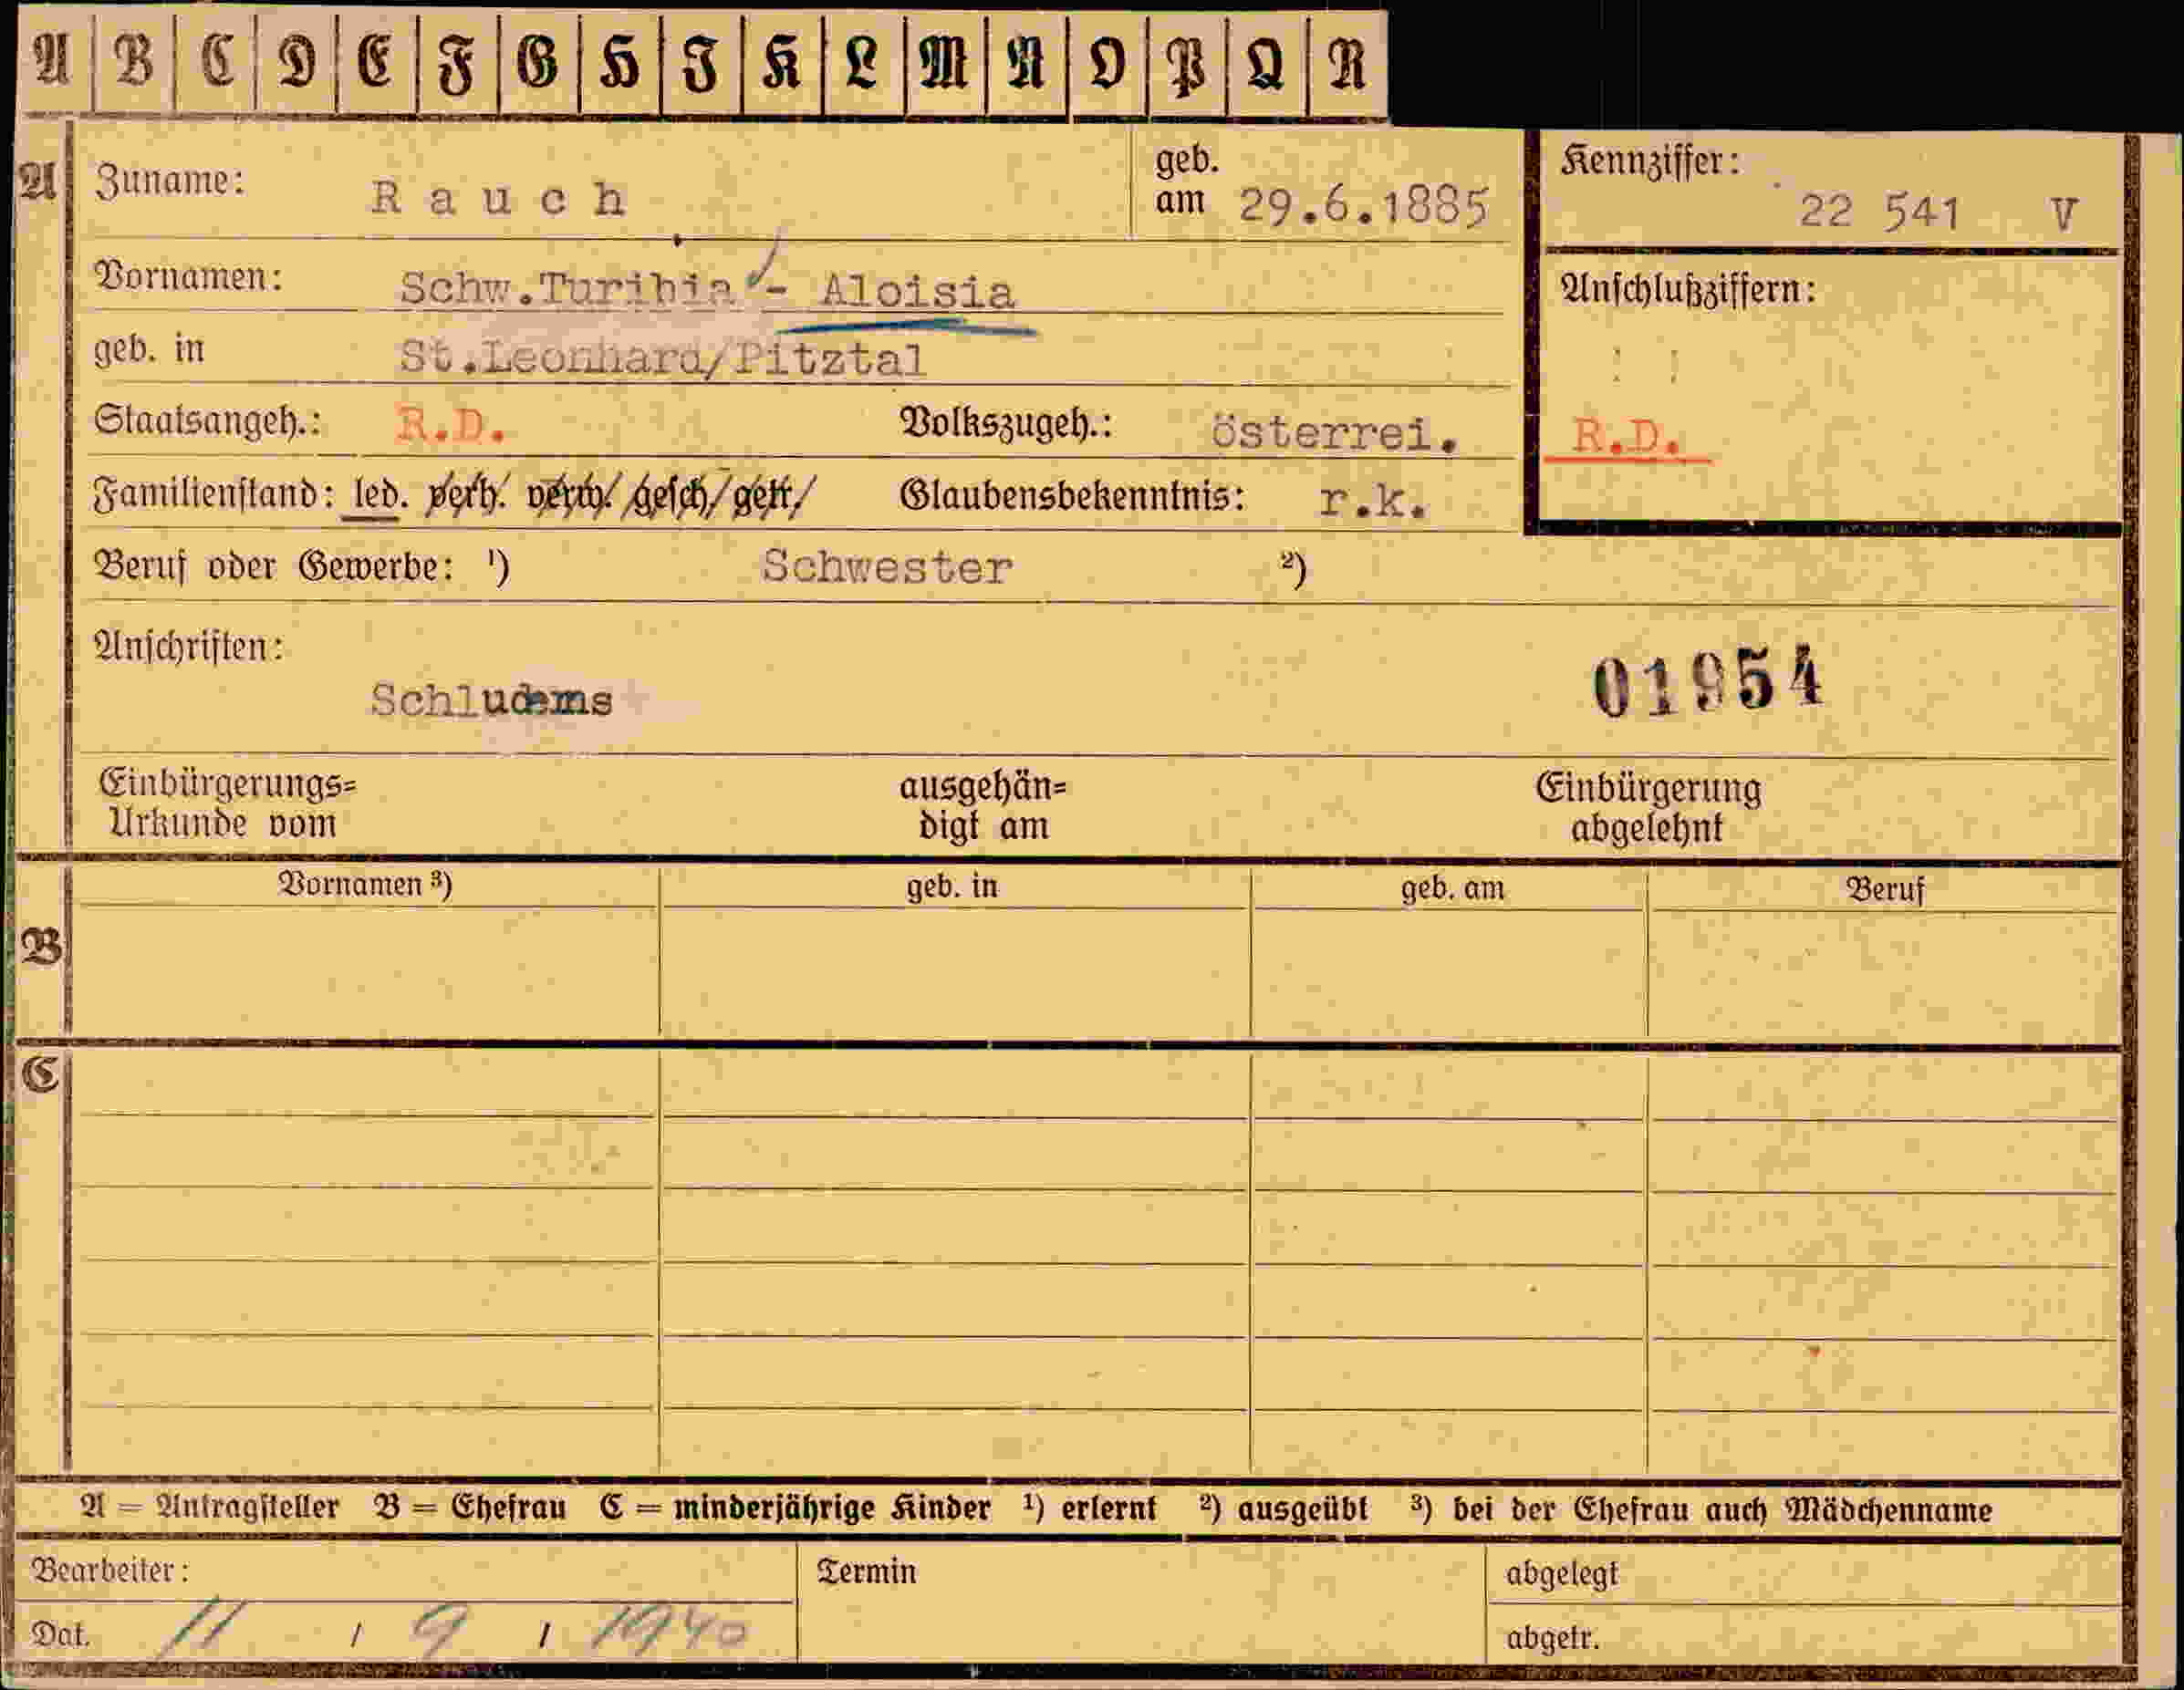 A B C D E F G H I K L M N O P Q R
A Zuname: Rauch geb. am 29.6.1885 Kennziffer: 22 541 V
Vornamen: Schw.Turibia - Aloisia Anschlußziffern:
geb. in St.Leonhard/Pitztal
Staatsangeh.: R.D. Volkszugeh.: österrei. R.D.
Familienstand: led. verh. verw. gesch. getr. Glaubensbekenntnis: r.k.
Beruf oder Gewerbe: ¹) Schwester ²)
Anschriften:
Schluderns 01954
Einbürgerungs= ausgehän= Einbürgerung
Urkunde vom digt am abgelehnt
Vornamen ³) geb. in geb. am Beruf
B
C
A = Antragsteller B = Ehefrau C = minderjährige Kinder ¹) erlernt ²) ausgeübt ³) bei der Ehefrau auch Mädchenname
Bearbeiter: Termin abgelegt
Dat. 11 / 9 / 1940 abgetr.